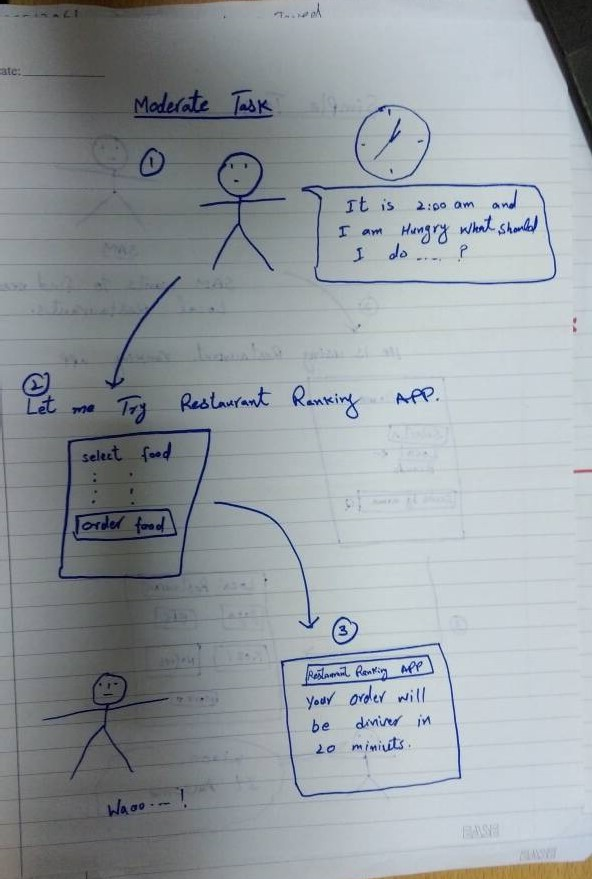 ate:
Moderate Task
1
It is 2:00 am and
I am Hungry what should
I do .... ?
2
Let me Try Restaurant Ranking APP.
select food
order food
3
Restaurant Ranking APP
your order will
be diniver in
20 miniuts.
Waoo---!